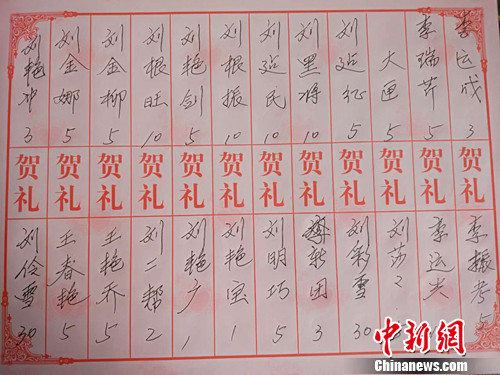 李运成 3
李瑞芹 5
大 5
刘延征 5
刘黑将 10
刘延民 10
刘根振 10
刘艳剑 5
刘根旺 10
刘金柳 5
刘金娜 5
刘艳冲 3
贺礼
贺礼
贺礼
贺礼
贺礼
贺礼
贺礼
贺礼
贺礼
贺礼
贺礼
贺礼
李振考 5
李运
刘莎
刘彩雪 30
新团 3
刘明巧 5
刘艳宝 1
刘艳广 1
刘二帮 2
王艳乔 5
王春艳 5
刘伶雪 30
中新网
Chinanews.com